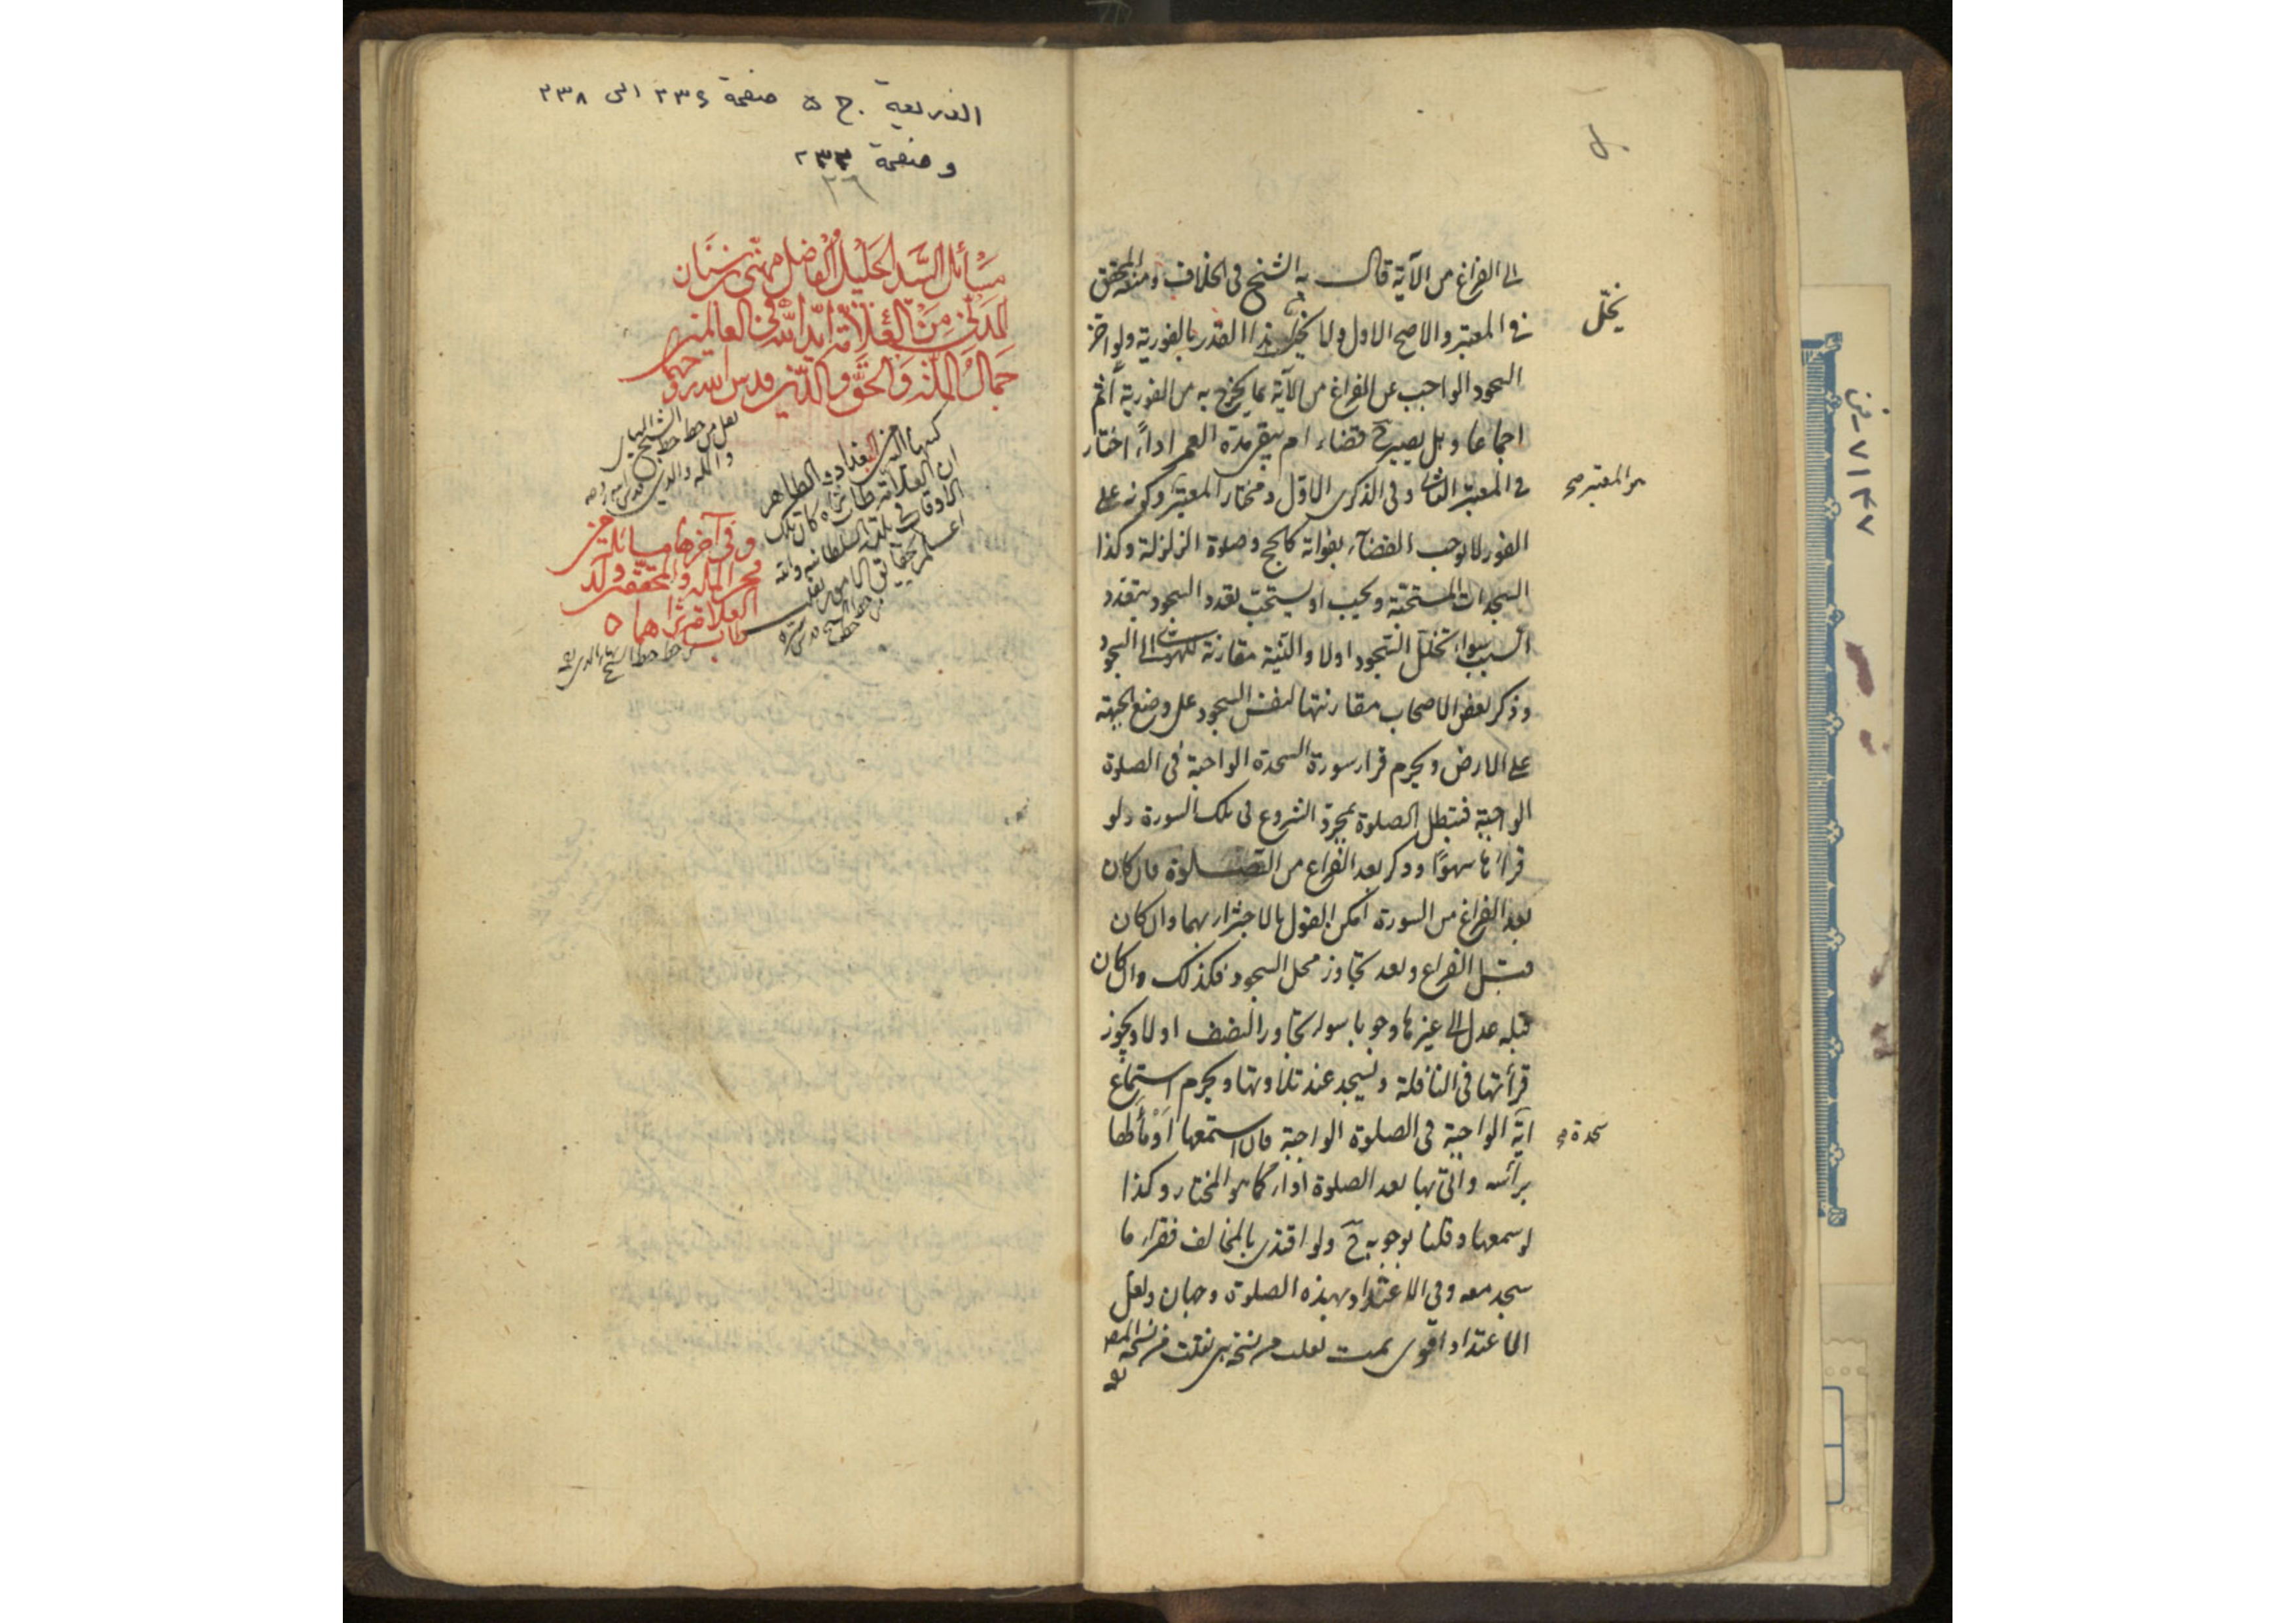 الى الفراغ من الآية قال به الشيخ فى الخلاف ومنعه المحقق
فى المعتبر والاصح الاول ولا يخل هذا القدر بالفورية ولو اخر
السجود الواجب عن الفراغ من الآية بما يخرج به من الفورية أثم
اجماعا وهل يصير ح قضاء ام يبقى مدة العمر اداء اختار
فى المعتبر الثانى وفى الذكرى الاول ومختار المعتبر وكونه على
الفور لا يوجب القضاء بفواته كالحج وصلوة الزلزلة وكذا
السجدات المستحبة ويجب او يستحب تعدد السجود بتعدد
السبب سواء تخلل السجود اولا والنية مقارنة للهوى الى السجود
وذكر بعض الاصحاب مقارنتها لنفس السجود على وضع الجبهة
على الارض ويحرم قراءة سورة السجدة الواجبة فى الصلوة
الواجبة فتبطل الصلوة بمجرد الشروع فى تلك السورة ولو
قرأها سهوا وذكر بعد الفراغ من الصلوة فان كان
بعد الفراغ من السورة امكن القول بالاجتزاء بهما وان كان
قبل الفراغ وبعد تجاوز محل السجود فكذلك وان كان
قبله عدل الى غيرها وجوبا سواء تجاوز النصف اولا ويجوز
قرأتها فى النافلة ويسجد عند تلاوتها ويحرم استماع
آية الواجبة فى الصلوة الواجبة فان استمعها أومأ لها
برأسه واتى بها بعد الصلوة اداء كما هو المختار وكذا
لو سمعها وقلنا بوجوبه ح ولو اقتدى بالمخالف فقراء ها
سجد معه وفى الاعتداد بهذه الصلوة وجهان ولعل
الاعتداد اقوى تمت نقلت من نسخة نقلت من نسخة المص
يخل
سجدة صح
الذريعة ج ٥ صفحة ٢٣٤ الى ٢٣٨
وصفحة ٢٣٣
٢٦
مسائل السيد الجليل الفاضل مهنى بن سنان
المدنى من العلامة آية الله فى العالمين
جمال الملة والحق والدين قدس الله روحهما
وفى آخرها مسائله من
فخر الملة والمحققين ولد
العلامة طاب ثراهما
٧١٤٧